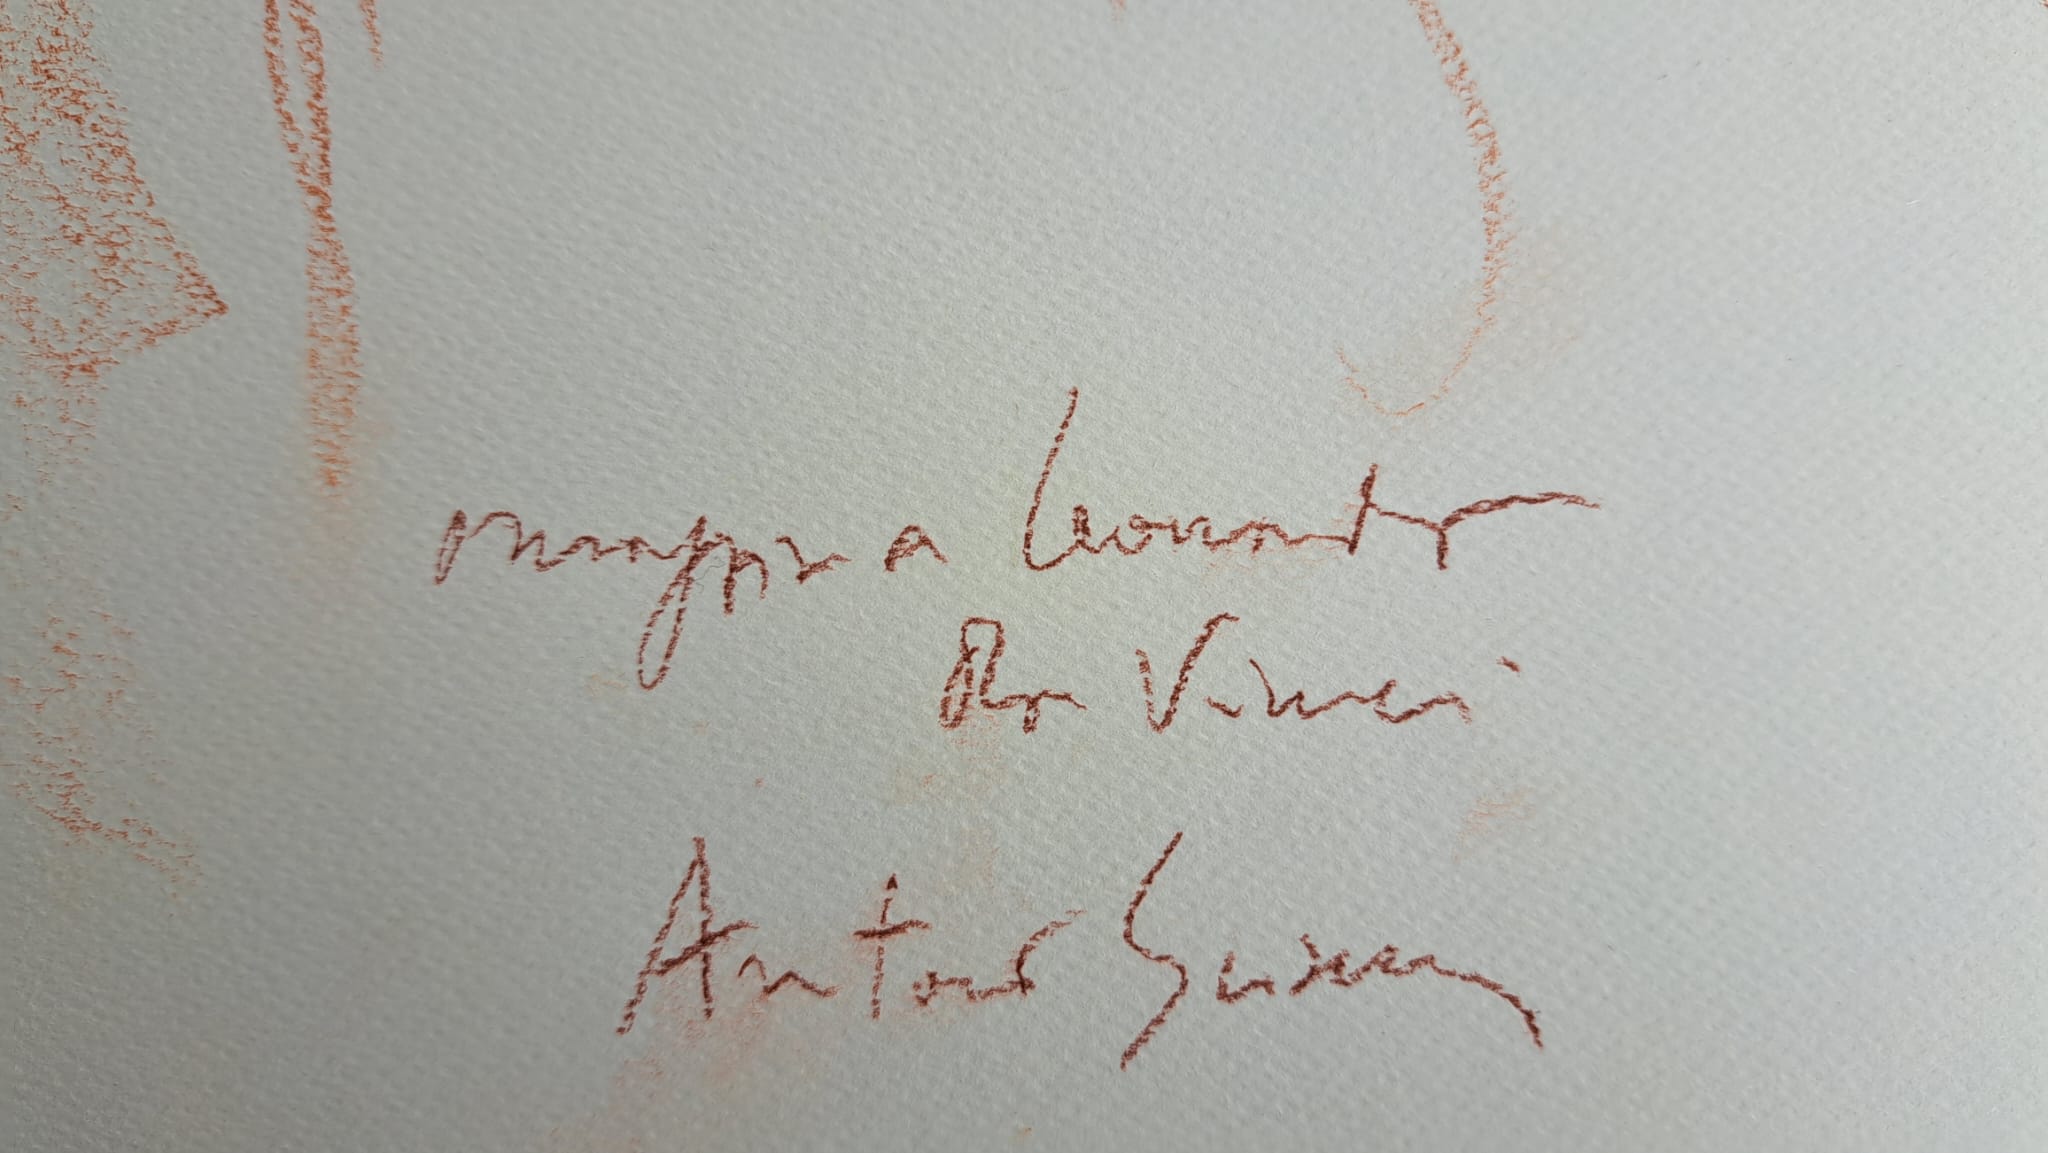 omaggio a Leonardo
Da Vinci
Antonio